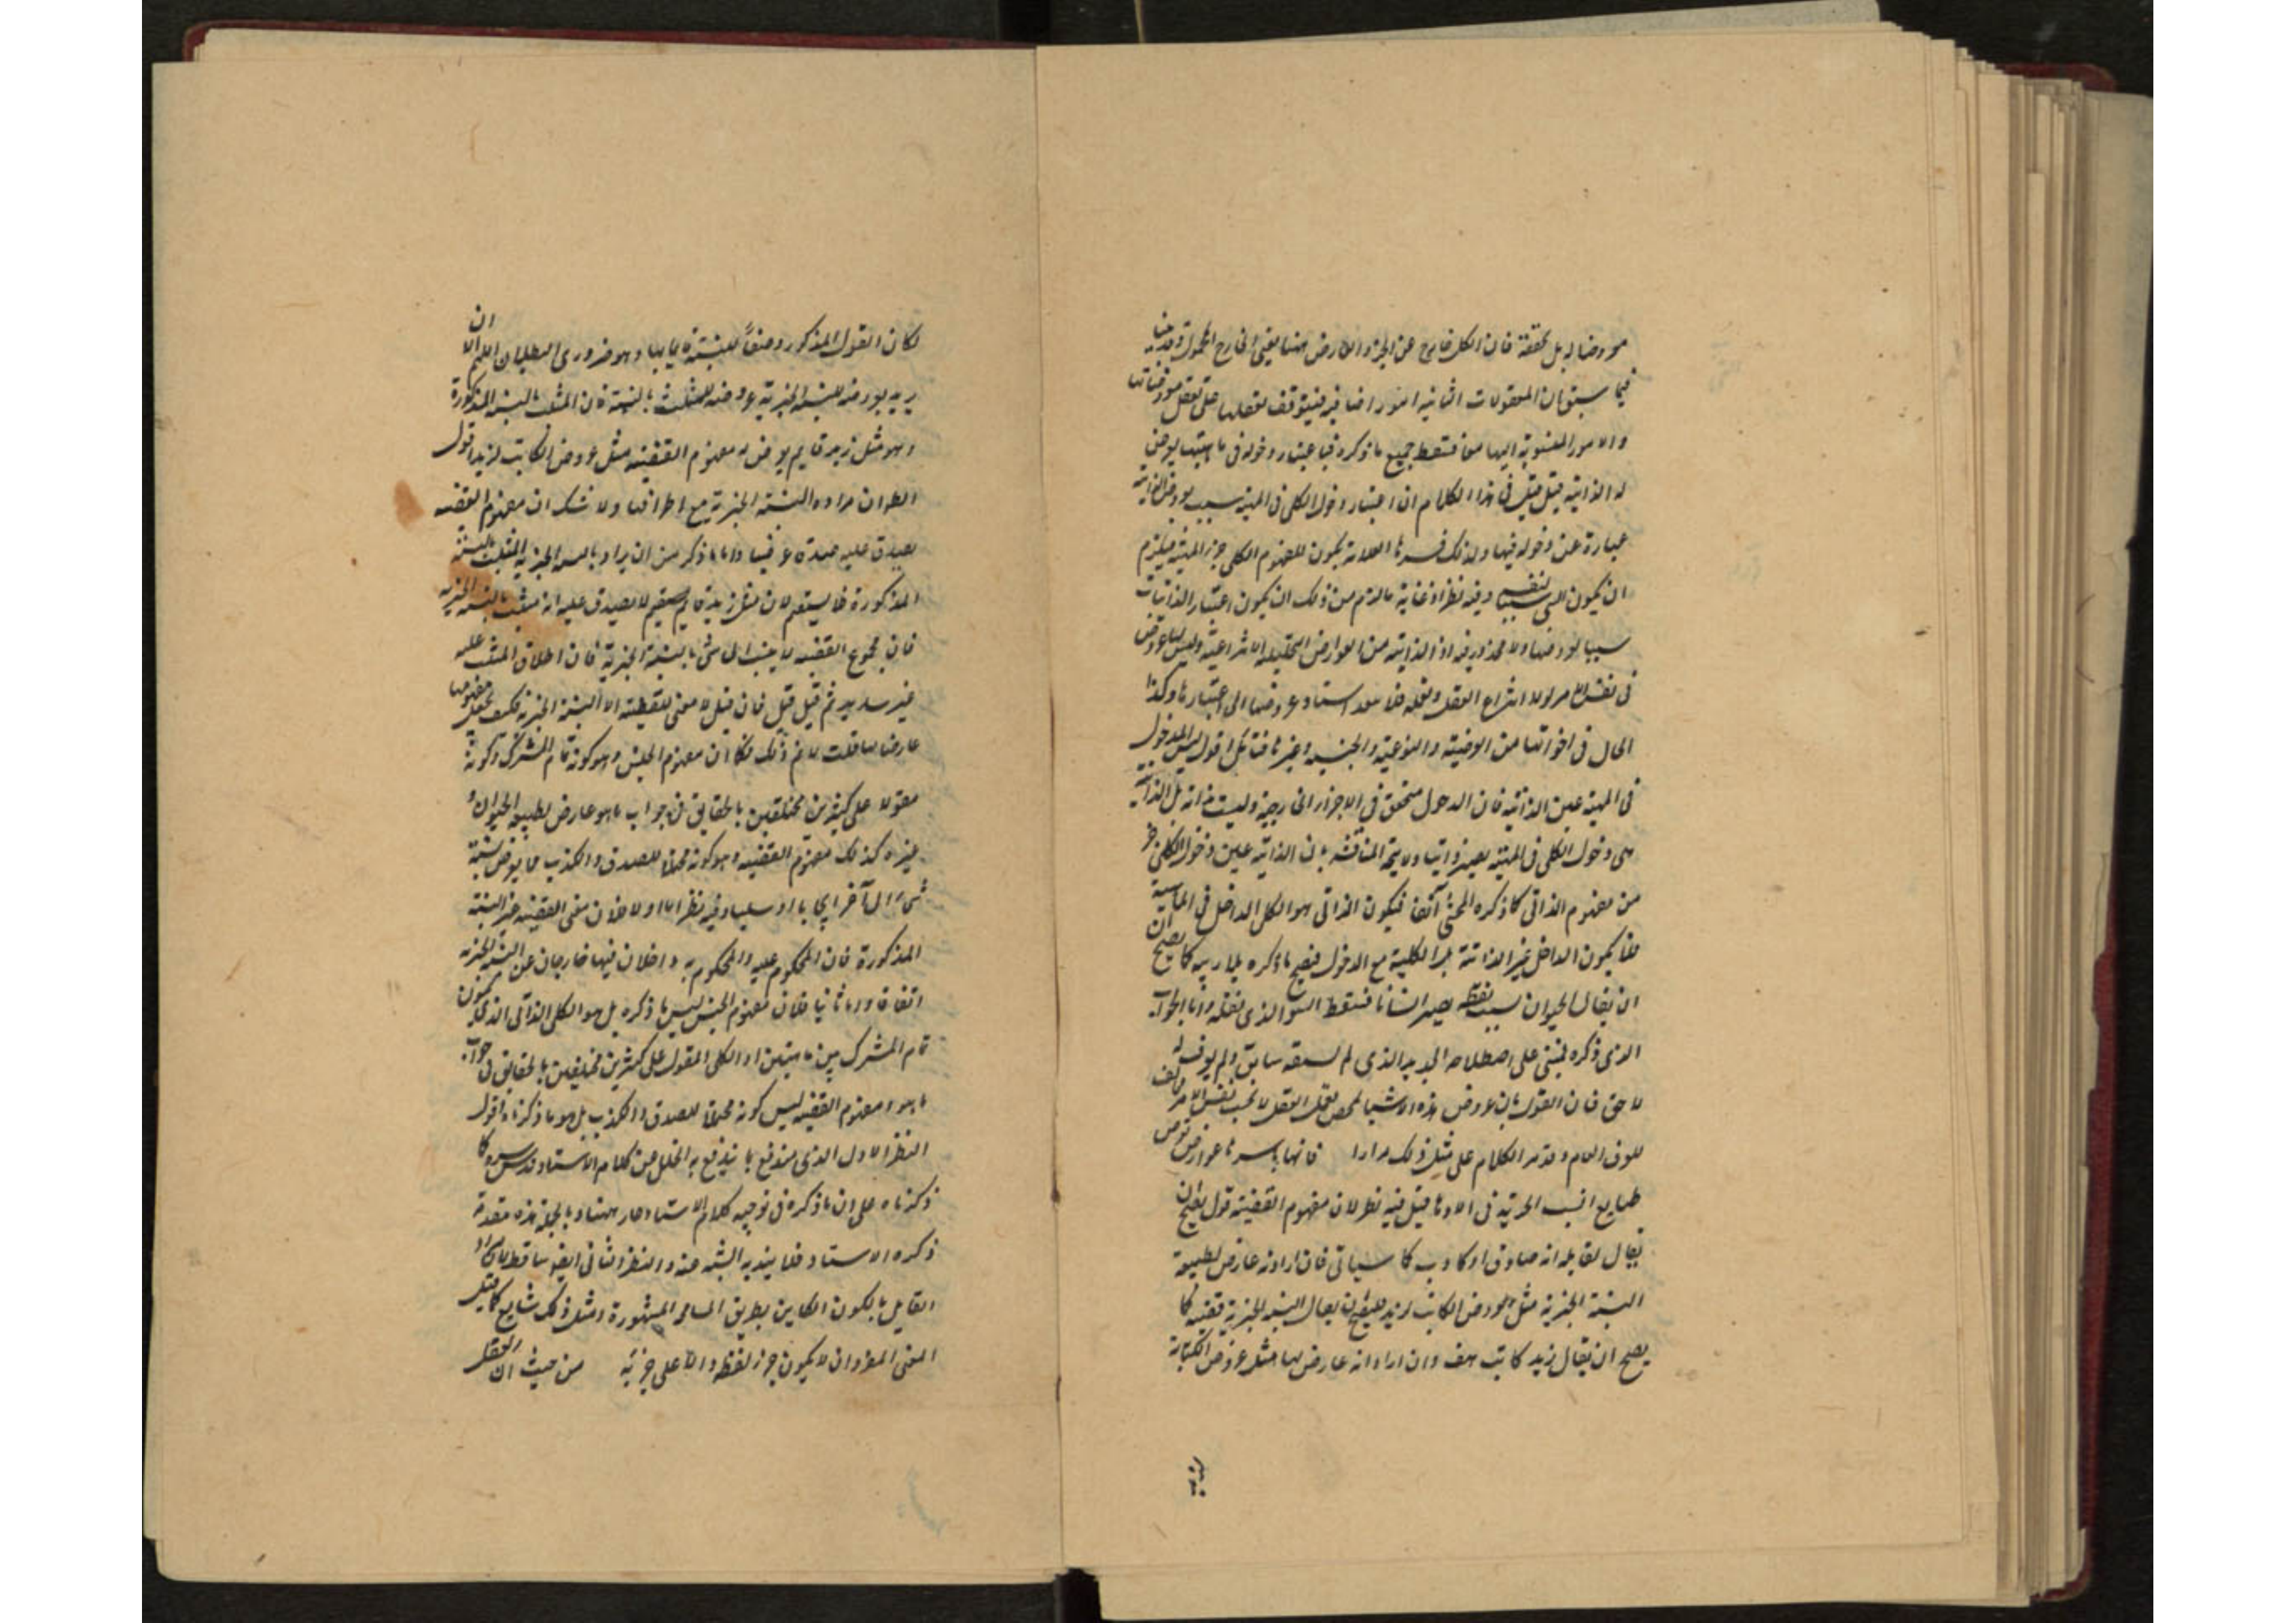 معروضا له بل محققة فان الكل خارج عن الجزء والعارض ههنا يعني الخارج المحمول وقد بينا
فيما سبق ان المعقولات الثانية امور اضافية فيتوقف تعقلها على تعقل معروضاتها
والامور المنسوبة اليها معا فسقط جميع ما ذكره فباعتبار دخوله في ماهيتها يعرض
له الذاتية قيل قيل في هذا الكلام ان اعتبار دخول الكلي في المهية سبب لعروض الذاتية
عبارة عن دخوله فيها ولذلك فسرها العلامة بكون المفهوم الكلي جزء المهية فيلزم
ان يكون الشي سببا لنفسه وفيه نظر اذ غاية ما لزم من ذلك ان يكون اعتبار الذاتيات
سببا لعروضها ولا محذور فيه اذ الذاتية من العوارض التحليلية الانتزاعية وليس لها عروض
في نفس الامر لولا انتزاع العقل وتعمله فلا اسناد عروضها الى اعتبارها وكذا
الحال في اخواتها من العرضية والنوعية والجنسية وغيرها فتامل اقول ليس الدخول
في المهية عين الذاتية فان الدخول متحقق في الاجزاء الخارجية وليست ذاته بل الذاتية
هي دخول الكلي في المهية ولا يتجه المناقشة بان الذاتية عين دخول الكلي
من مفهوم الذاتي كما ذكره المحشي آنفا فيكون الذاتي هو الكلي الداخل في الماهية
فلا يكون الداخل غير الذاتية بل الكلية مع الدخول فيصح ما ذكره بلا ريب كما يصح ان
ان يقال الحيوان بسبب نطقه يصير انسانا فسقط السؤ الذي نقله واما الجواب
الذي ذكره فمبني على اصطلاحه الجديد الذي لم يسبقه سابق ولم يوافقه
لاحق فان القول بان عروض هذه الاشيا لمحض تعمل العقل لا بحسب نفس الامر مخالف
للعرف العام وقد مر الكلام على مثل ذلك مرارا فانها باسرها عوارض تعرض
طبايع النسب الخبرية في الاذهان قيل فيه نظر لان مفهوم القضية قول يصح ان
يقال لقايله انه صادق او كاذب كما سياتي فان اراد انه عارض لطبيعة
النسبة الخبرية مثل عروض الكاتب لزيد فليصح ان يقال النسبة الخبرية قضية كما
يصح ان يقال زيد كاتب هف وان اراد انه عارض لها مثل عروض الكتابة
لكان القول المذكور وصفا للنسبة قايما بها وهو ضروري البطلان اللهم الا ان
يريد بعروضه للنسبة الخبرية عروضه للمثلث بالنسبة فان المثلث بالنسبة المذكورة
وهو مثل زيد قايم يعرض له مفهوم القضية مثل عروض الكاتب لزيد اقول
الظ ان مراده النسبة الخبرية مع اطرافها ولا شك ان مفهوم القضية
يصدق عليه صدقا عرضيا واما ما ذكر من ان يراد بالنسبة الخبرية المثلث بالنسبة
المذكورة فلا يستقيم لان مثل زيد قايم لا يصدق عليه انه مثلث بالنسبة الخبرية
فان مجموع القضية لا ينسب الى شي بالنسبة الخبرية فان اطلاق المثلث عليه
غير سديد ثم قيل قيل فان قيل لا معنى للقضية الا النسبة الخبرية فكيف يجعل مفهومها
عارضا لها قلت لا نم ذلك فكما ان مفهوم الجنس وهو كونه تمام المشترك وكونه
مقولا على كثيرين مختلفين بالحقايق في جواب ما هو عارض لطبيعة الحيوان و
غيره كذلك مفهوم القضية وهو كونه محتملا للصدق والكذب مما يعرض نسبة
شيء الى آخر ايجابا او سلبا وفيه نظر اما اولا فلان معنى القضية غير النسبة
المذكورة فان المحكوم عليه والمحكوم به داخلان فيها خارجان عن النسبة الخبرية
اتفاقا واما ثانيا فلان مفهوم الجنس ليس ما ذكره بل هو الكلي الذاتي الذي يكون
تمام المشترك بين ماهيتين او الكلي المقول على كثيرين مختلفين بالحقايق في جواب
ما هو ومفهوم القضية ليس كونه محتملا للصدق والكذب بل هو ما ذكرناه اقول
النظر الاول الذي مندفع بما يندفع به الخلل من كلام الاستاد قدس سره كما
ذكرناه على ان ما ذكره في توجيه كلام الاستاد جار ههنا وبالجملة هذه مقدمة
ذكره الاستاد فلا يندبه الشبه عنه والنظر الثاني ايضا ساقط لان مراد
القايل بالكون الكاين بطريق المسامحة المشهورة ومثل ذلك شايع كما قيل
المعنى المفرد ان لا يكون جزء لفظه دالا على جزئه من حيث ان العقل